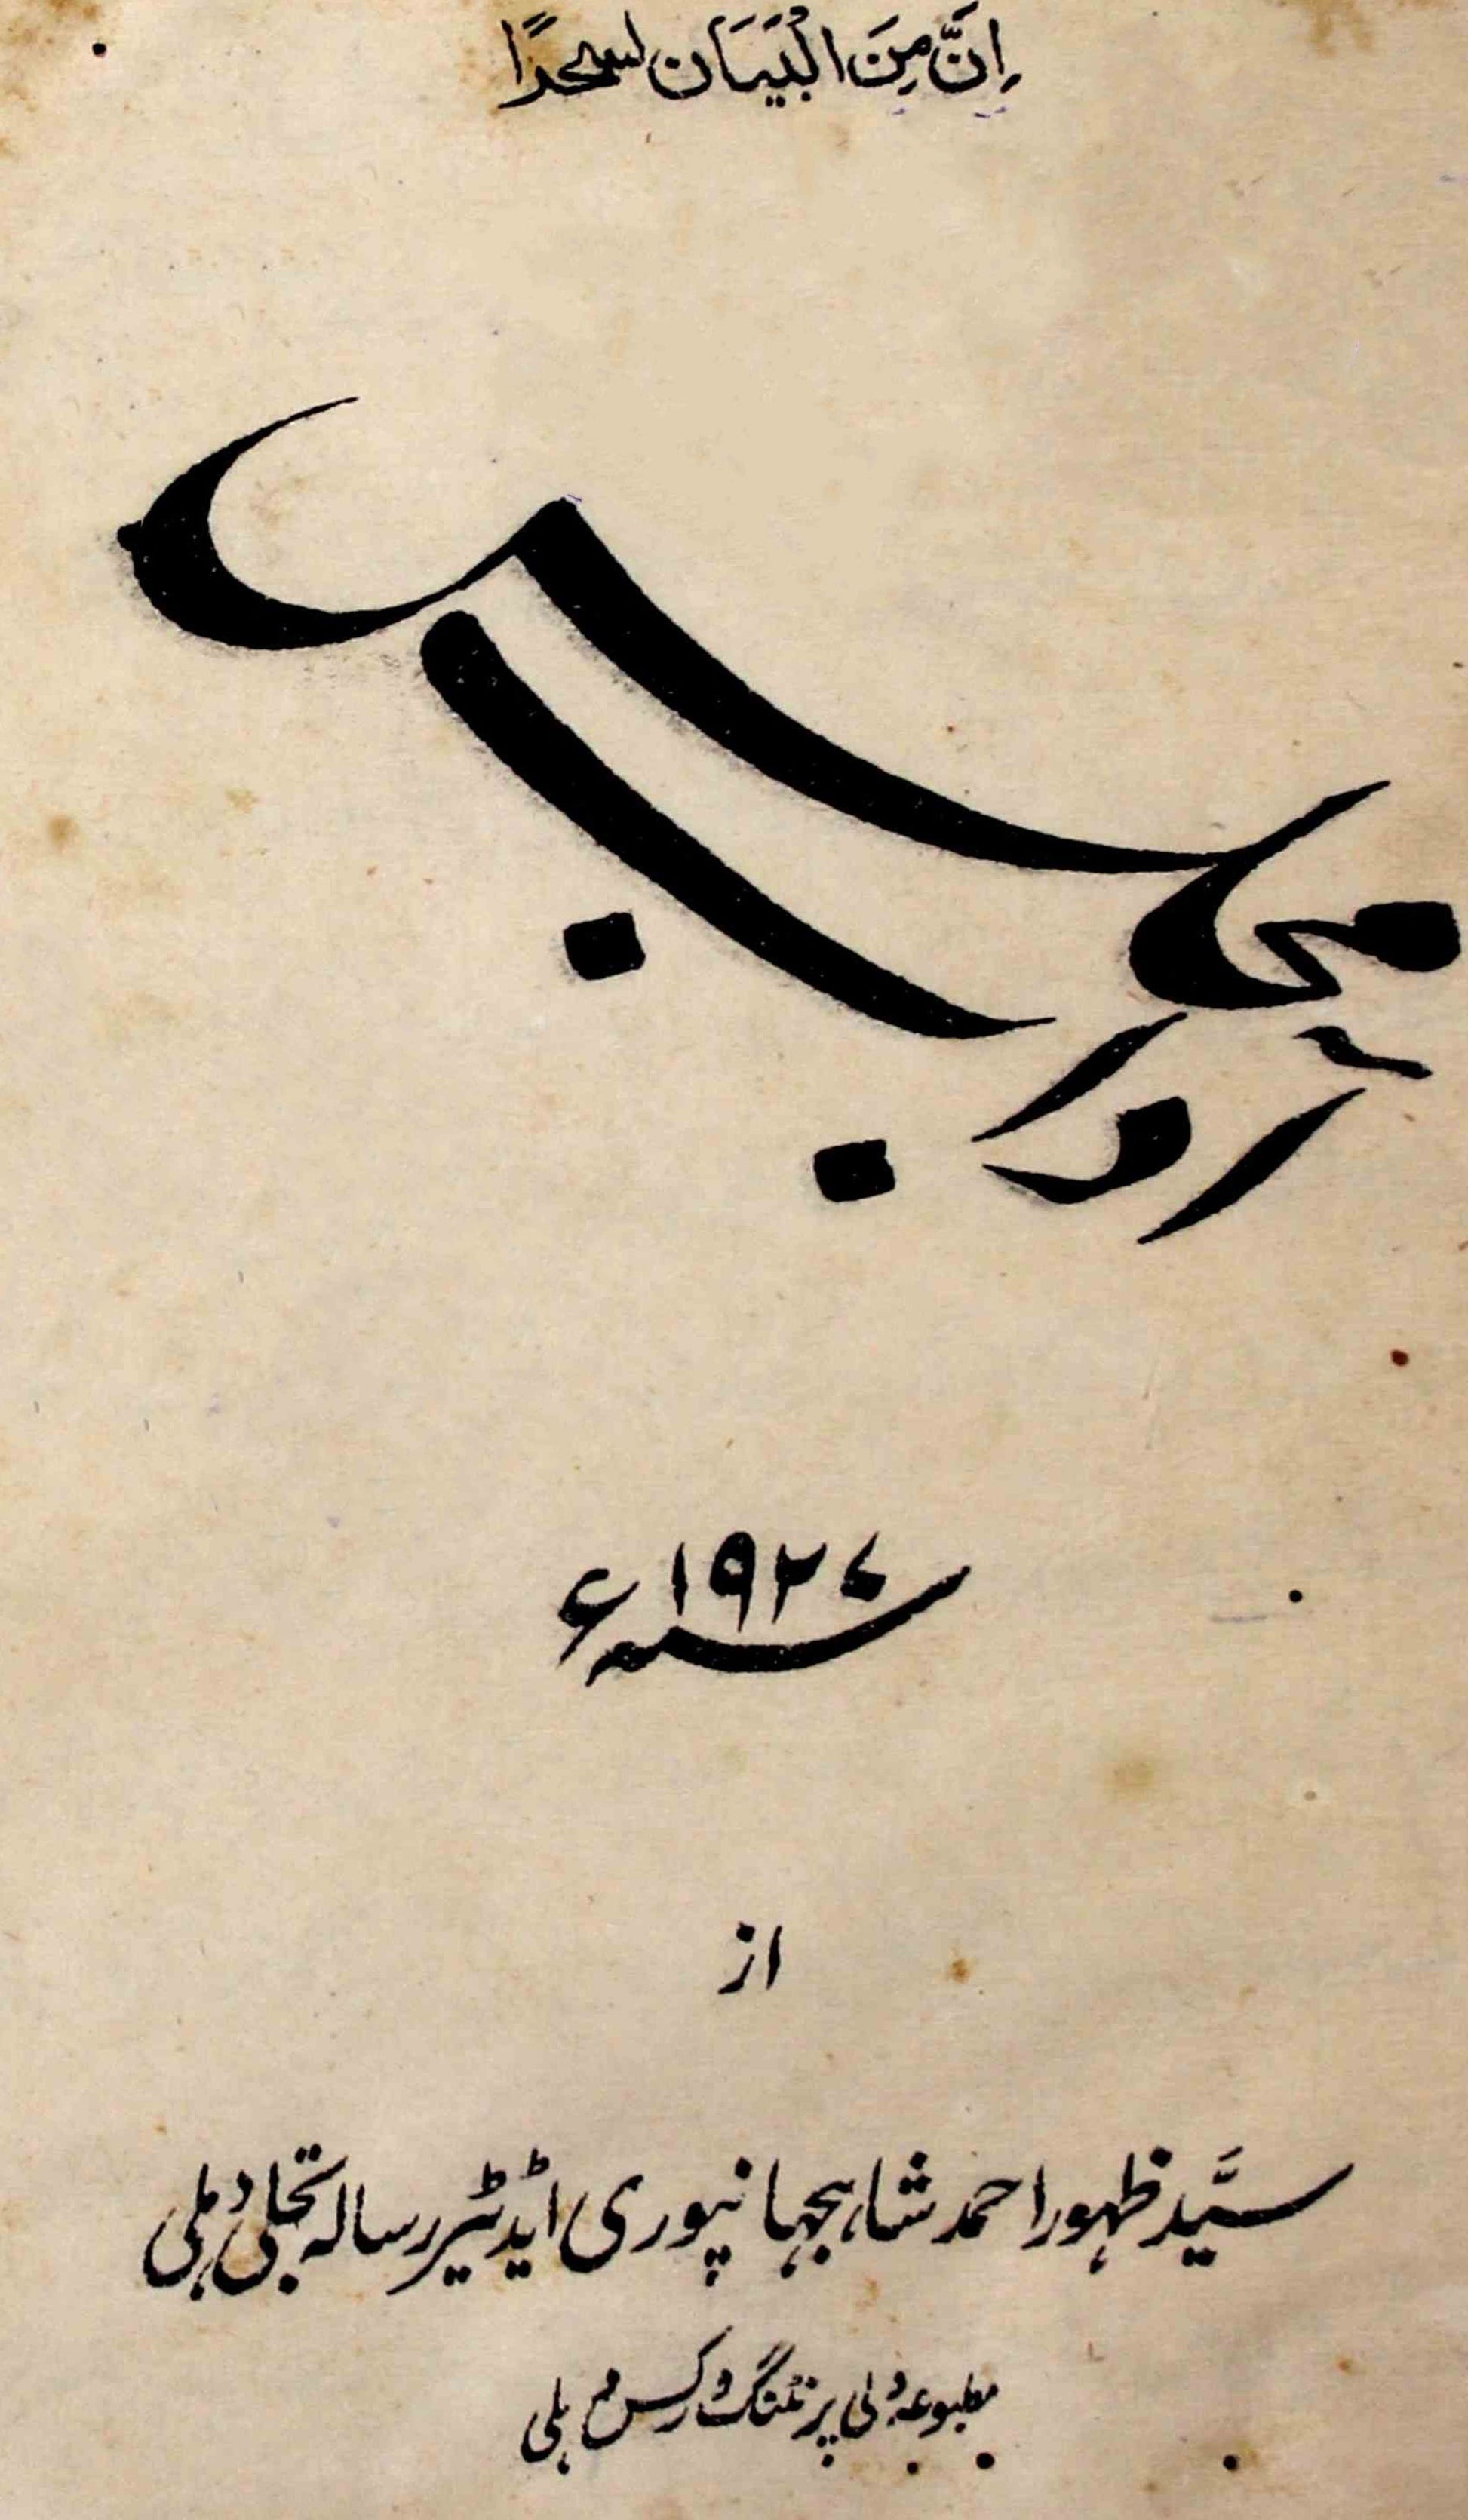 اِنَّ مِنَ الْبَیَان لسحرًا
آداب مجلس
سنہ ۱۹۲۷ء
از
سیَّد ظہور احمد شاہجہانپوری ایڈیٹر رسالہ تجلی دہلی
مطبوعہ دلی پرنٹنگ ورکس دہلی